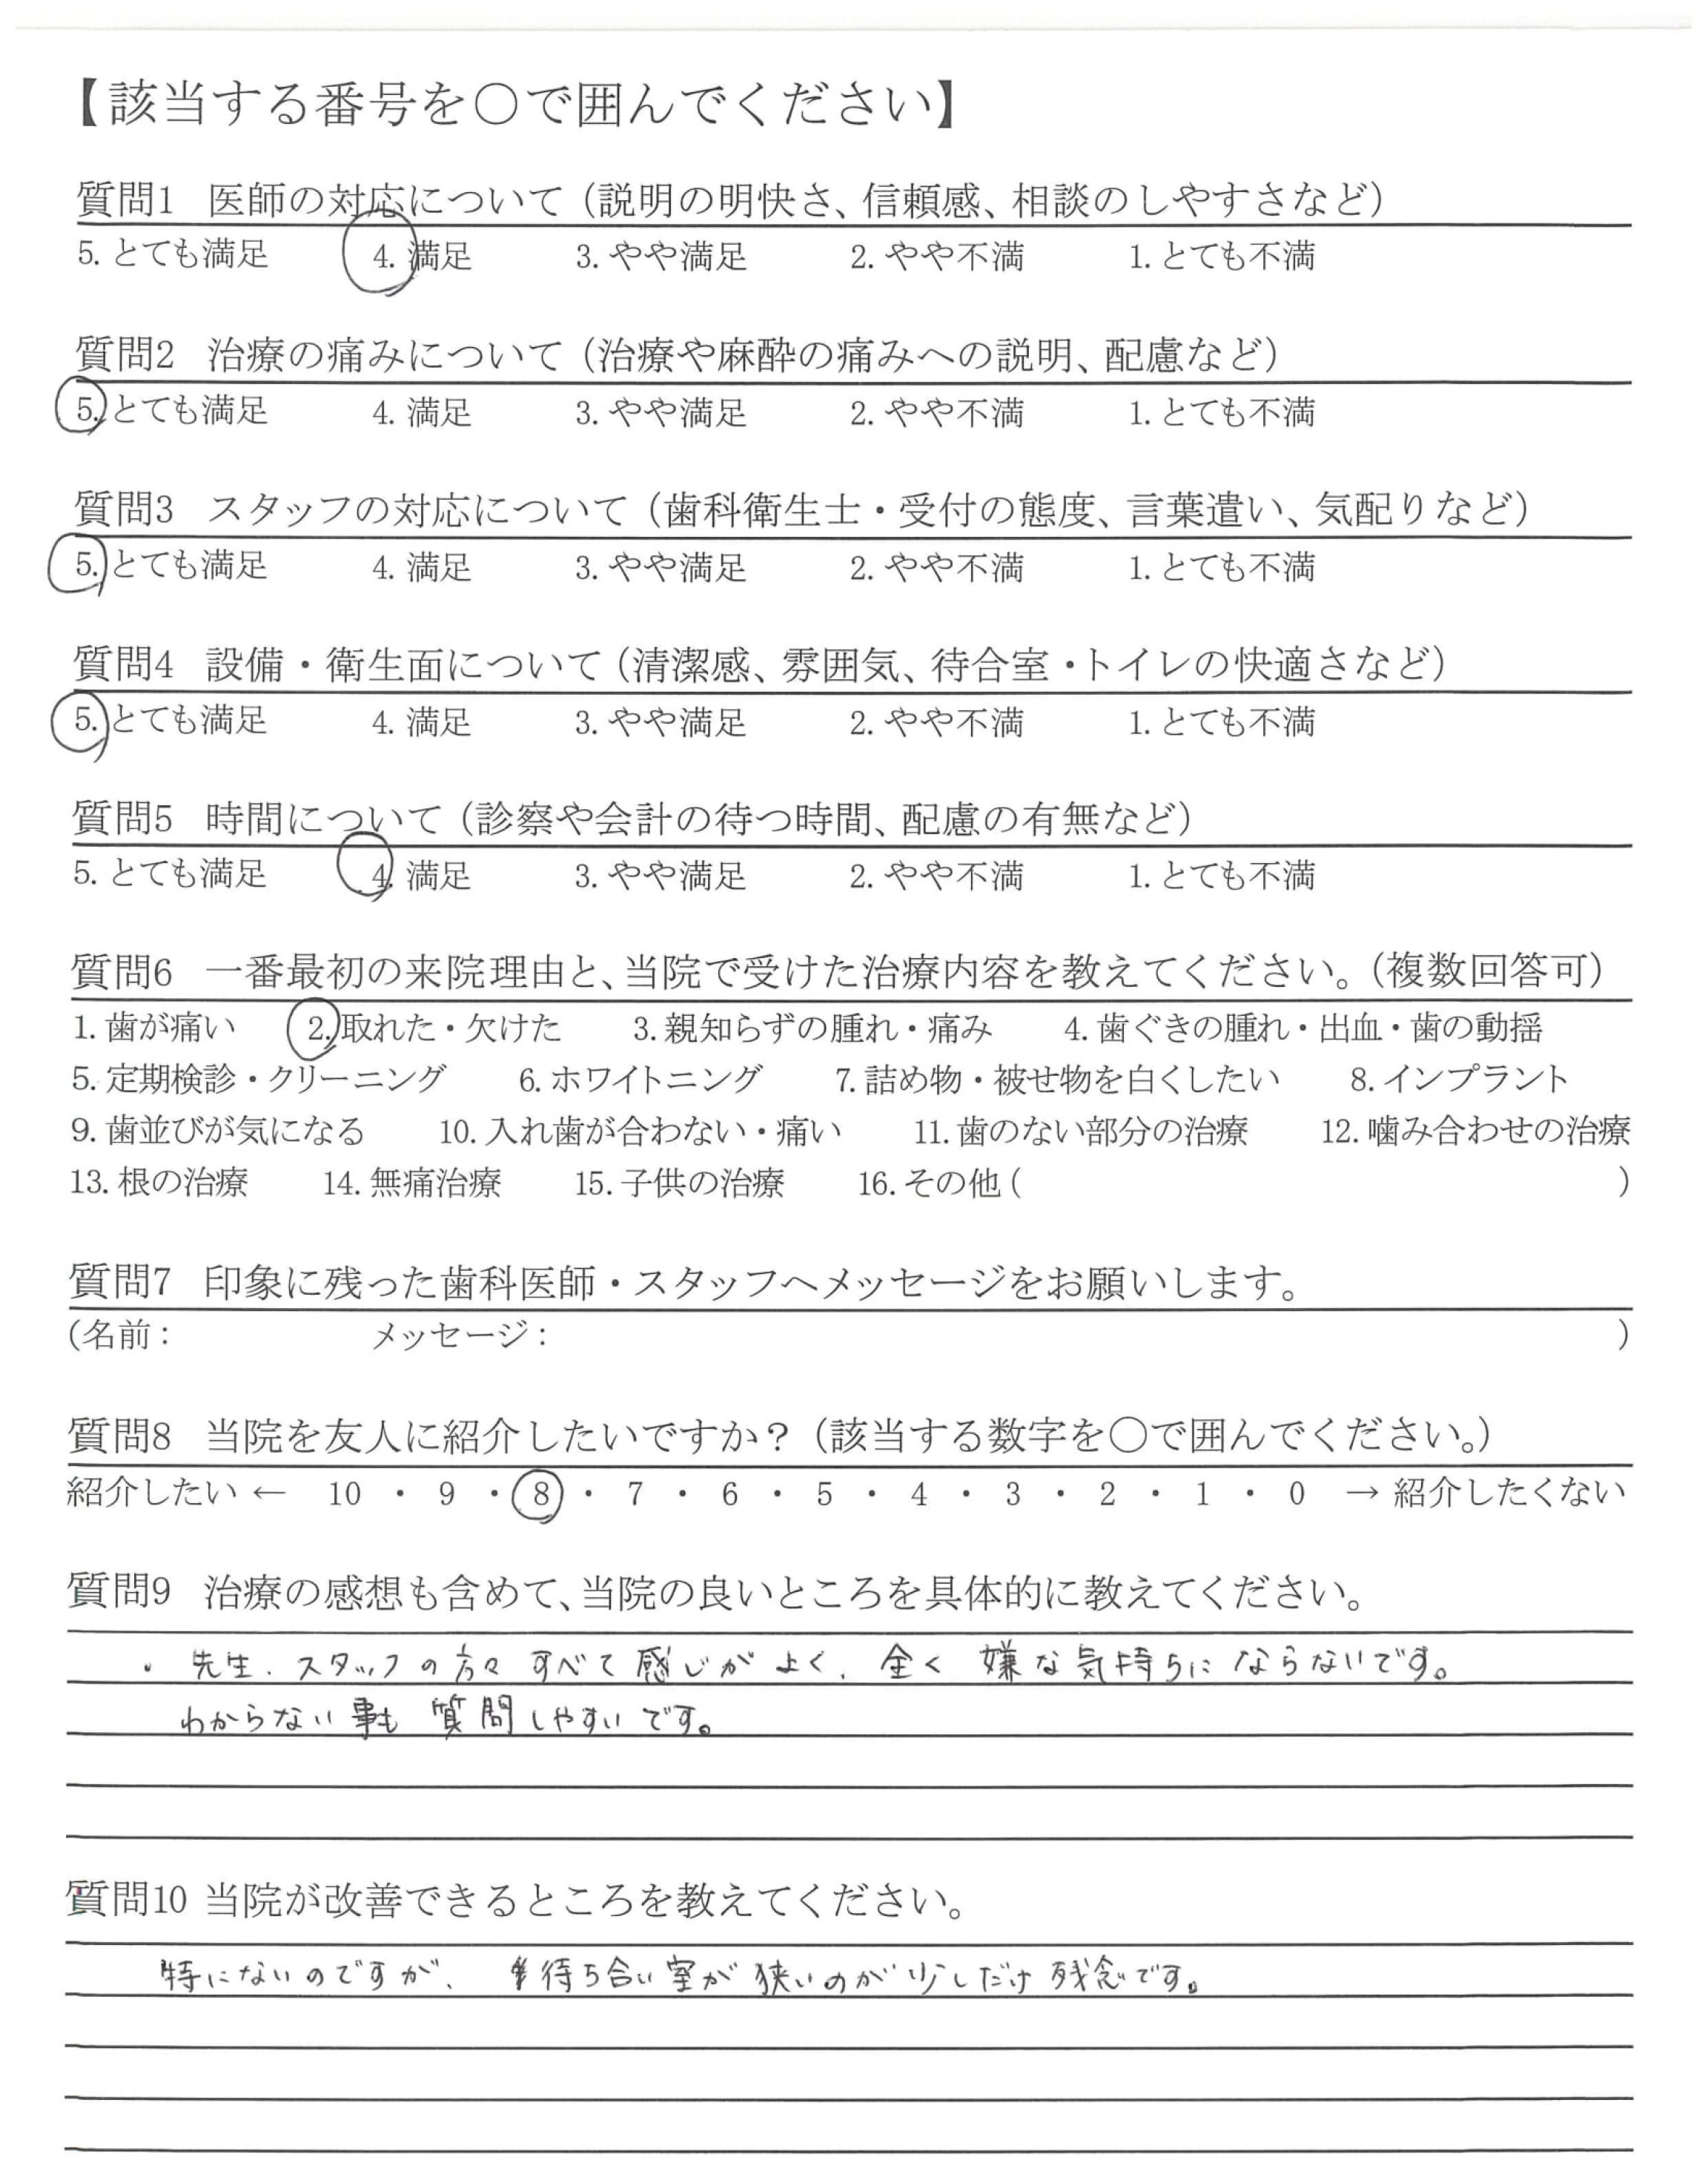 【該当する番号を○で囲んでください】
質問1 医師の対応について（説明の明快さ、信頼感、相談のしやすさなど）
5. とても満足 4. 満足 3. やや満足 2. やや不満 1. とても不満
質問2 治療の痛みについて（治療や麻酔の痛みへの説明、配慮など）
5. とても満足 4. 満足 3. やや満足 2. やや不満 1. とても不満
質問3 スタッフの対応について（歯科衛生士・受付の態度、言葉遣い、気配りなど）
5. とても満足 4. 満足 3. やや満足 2. やや不満 1. とても不満
質問4 設備・衛生面について（清潔感、雰囲気、待合室・トイレの快適さなど）
5. とても満足 4. 満足 3. やや満足 2. やや不満 1. とても不満
質問5 時間について（診察や会計の待つ時間、配慮の有無など）
5. とても満足 4. 満足 3. やや満足 2. やや不満 1. とても不満
質問6 一番最初の来院理由と、当院で受けた治療内容を教えてください。（複数回答可）
1. 歯が痛い 2. 取れた・欠けた 3. 親知らずの腫れ・痛み 4. 歯ぐきの腫れ・出血・歯の動揺
5. 定期検診・クリーニング 6. ホワイトニング 7. 詰め物・被せ物を白くしたい 8. インプラント
9. 歯並びが気になる 10. 入れ歯が合わない・痛い 11. 歯のない部分の治療 12. 噛み合わせの治療
13. 根の治療 14. 無痛治療 15. 子供の治療 16. その他（ ）
質問7 印象に残った歯科医師・スタッフへメッセージをお願いします。
（名前： メッセージ： ）
質問8 当院を友人に紹介したいですか？（該当する数字を○で囲んでください。）
紹介したい ← 10 ・ 9 ・ 8 ・ 7 ・ 6 ・ 5 ・ 4 ・ 3 ・ 2 ・ 1 ・ 0 → 紹介したくない
質問9 治療の感想も含めて、当院の良いところを具体的に教えてください。
・先生、スタッフの方々 すべて 感じが よく、全く 嫌な気持ちに ならないです。
わからない事も 質問しやすいです。
質問10 当院が改善できるところを教えてください。
特にないのですが、待ち合い室が狭いのが少しだけ残念です。